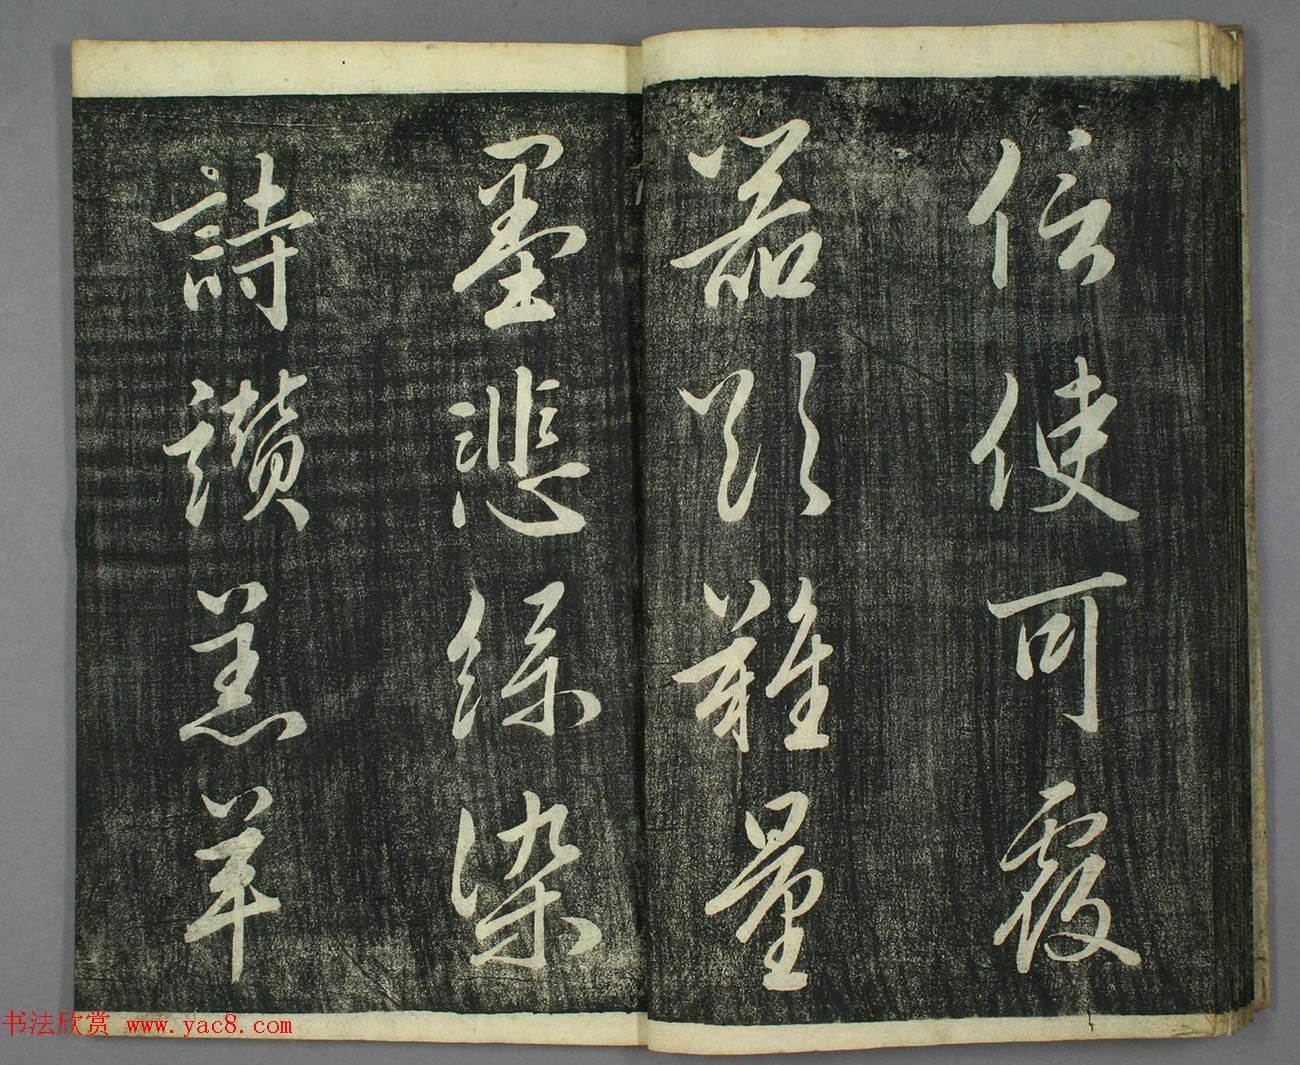 信使可覆
器欲難量
墨悲絲染
詩讚羔羊
书法欣赏 www.yac8.com